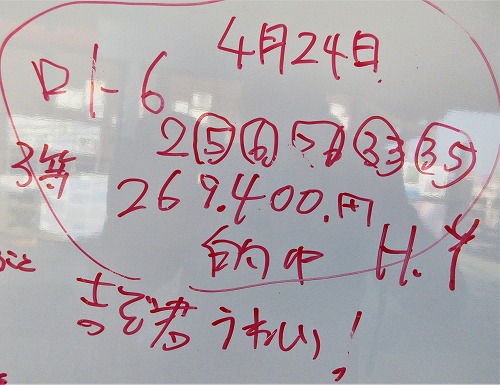 4月24日
ロト6
2 5 6 33 35
3等
269.400.円
的中 H.Y
こと
うれしい!